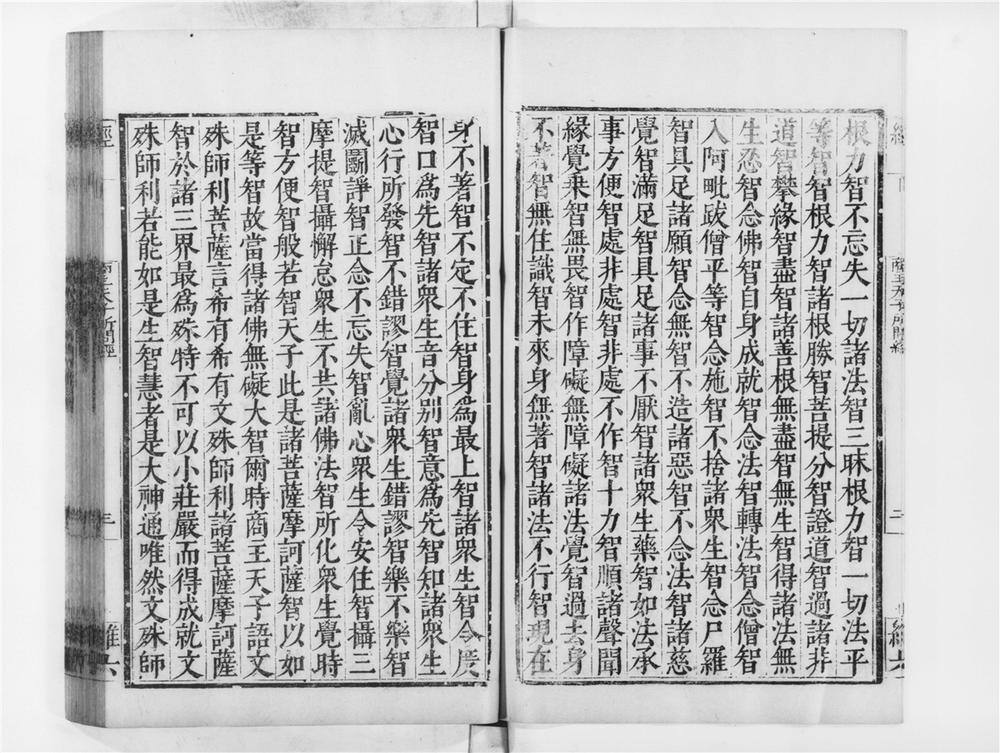 根力智不忘失一切諸法智三昧根力智一切法平
等智智根力智諸根勝智菩提分智證道智過諸非
道智攀緣智盡智諸善根無盡智無生智得諸法無
生忍智念佛智自身成就智念法智轉法智念僧智
入阿毗跋僧平等智念施智不捨諸衆生智念尸羅
智具足諸願智念無智不造諸惡智不念法智諸慈
覺智滿足智具足諸事不厭智諸衆生藥智如法承
事方便智處非處智非處不作智十力智順諸聲聞
緣覺乘智無畏智作障礙無障礙諸法覺智過去身
不著智無住識智未來身無著智諸法不行智現在
身不著智不定不住智身爲最上智諸衆生智令度
智口爲先智諸衆生音分别智意爲先智知諸衆生
心行所發智不錯謬智覺諸衆生錯謬智樂不樂智
滅鬬諍智正念不忘失智亂心衆生令安住智攝三
摩提智攝懈怠衆生不共諸佛法智所化衆生覺時
智方便智般若智天子此是諸菩薩摩訶薩智以如
是等智故當得諸佛無礙大智爾時商主天子語文
殊師利菩薩言希有希有文殊師利諸菩薩摩訶薩
智於諸三界最爲殊特不可以小莊嚴而得成就文
殊師利若能如是生智慧者是大神通唯然文殊師
經
商主天子所問經
三
維六